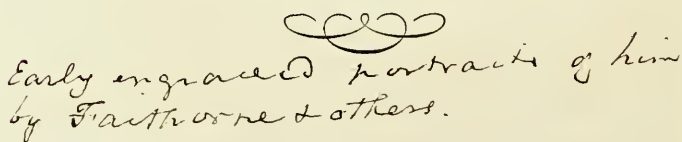 Early engraved portraits of him
by Faithorne & others.